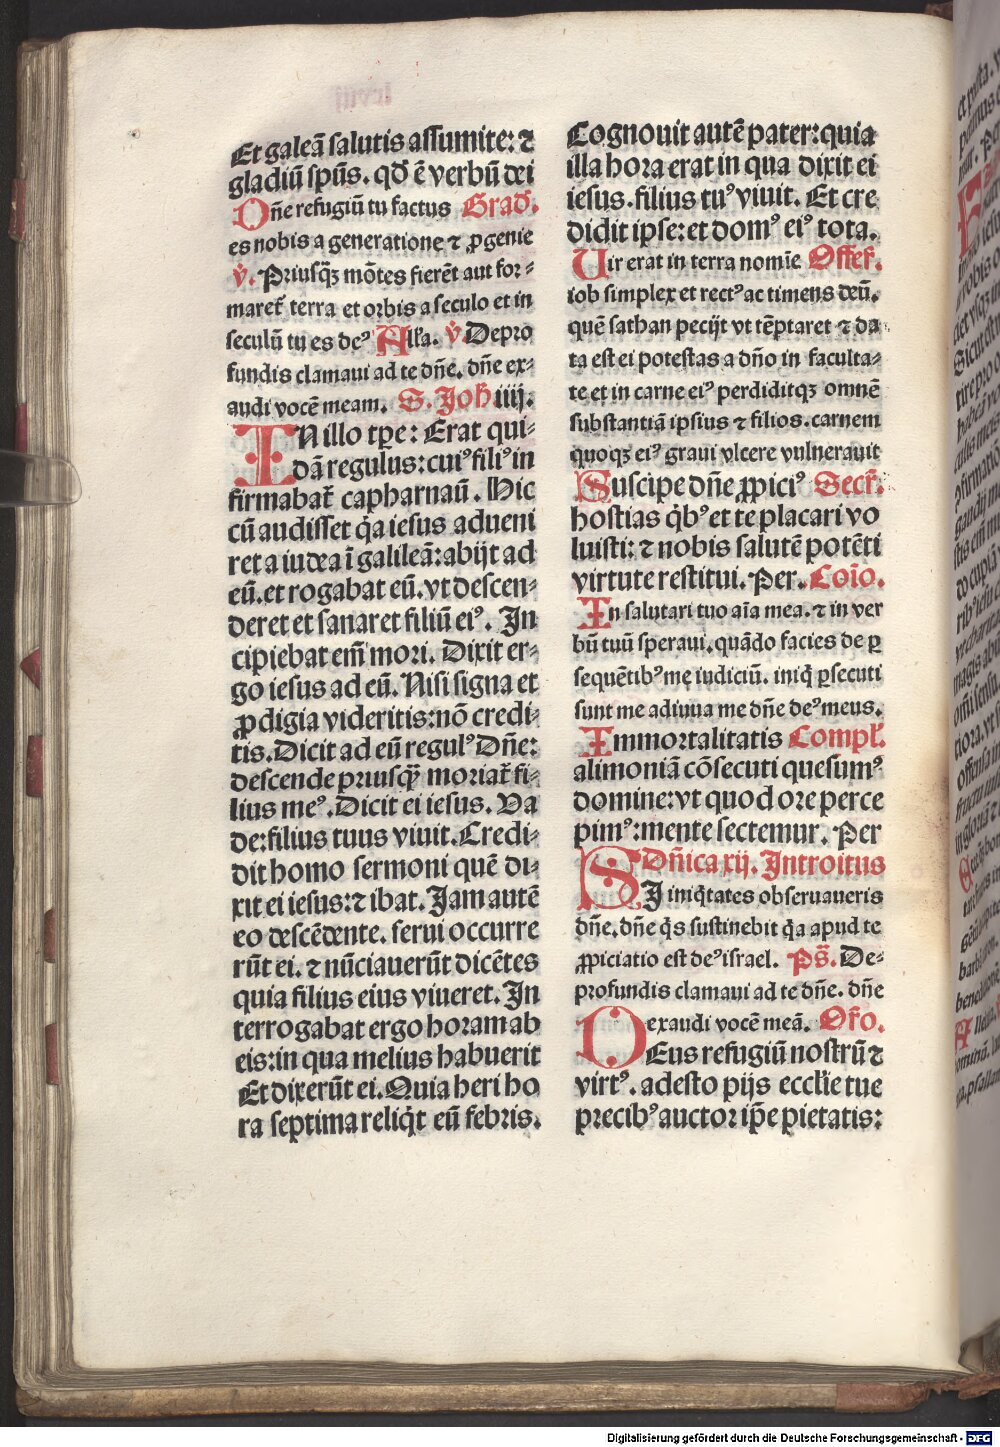 Et galeā salutis assumite: ⁊
gladiū spūs. qđ ē verbū dei
Oñe refugiū tu factus Grad̄.
es nobis a generatione ⁊ ꝓgenie
v̄. Priusq̄ꝫ mōtes fierēt aut for⸗
maret̄ terra et orbis a seculo et in
seculū tu es deꝰ All'a. v̄. De pro
fundis clamaui ad te dñe. dñe ex⸗
audi vocē meam. S. Joh̄ iiij.
IN illo tꝑe: Erat qui⸗
dā regulus: cuiꝰ filiꝰ in
firmabat̄ capharnaū. Hic
cū audisset q̇a iesus adueni
ret a iudea ī galileā: abijt ad
eū. et rogabat eū. vt descen⸗
deret et sanaret filiū eiꝰ. In
cipiebat em̄ mori. Dixit er⸗
go iesus ad eū. Nisi signa et
ꝓdigia videritis: nō credi⸗
tis. Dicit ad eū regulꝰ Dñe:
descende priusq̄ꝫ moriat̄ fi⸗
lius meꝰ. Dicit ei iesus. Va
de: filius tuus viuit. Credi⸗
dit homo sermoni quē di⸗
xit ei iesus: ⁊ ibat. Jam autē
eo descēdente. serui occurre
rūt ei. ⁊ nūciauerūt dicētes
quia filius eius viueret. In
terrogabat ergo horam ab
eis: in qua melius habuerit
Et dixerūt ei. Quia heri ho
ra septima reliq̇t eū febris.
Cognouit autē pater: quia
illa hora erat in qua dixit ei
iesus. filius tuꝰ viuit. Et cre
didit ipse: et domꝰ eiꝰ tota.
Uir erat in terra nomīe Offer̄.
iob simplex et rectꝰ ac timens deū.
quē sathan pecijt vt tēptaret ⁊ da
ta est ei potestas a dño in faculta⸗
te et in carne eiꝰ perdiditqꝫ omnē
substantiā ipsius ⁊ filios. carnem
quoqꝫ eiꝰ graui vlcere vulnerauit
Suscipe dñe ꝓpiciꝰ Secr̄.
hostias q̇bꝰ et te placari vo
luisti: ⁊ nobis salutē potēti
virtute restitui. Per. Coīo.
In salutari tuo aīa mea. ⁊ in ver
bū tuū speraui. quādo facies de ꝑ
sequētibꝰ me iudiciū. iniq̇ ꝑsecuti
sunt me adiuua me dñe deꝰ meus.
Immortalitatis Compl̄.
alimoniā cōsecuti quesumꝰ
domine: vt quod ore perce
pimꝰ: mente sectemur. Per
Dñica xij. Introitus
SI iniq̇tates obseruaueris
dñe. dñe q̇s sustinebit q̇a apud te
ꝓpiciatio est deꝰ israel. Ps̄. De⸗
profundis clamaui ad te dñe. dñe
exaudi vocē meā. Or̄o.
DEus refugiū nostrū ⁊
virtꝰ. adesto pijs eccl'ie tue
precibꝰ auctor ip̄e pietatis:
Digitalisierung gefördert durch die Deutsche Forschungsgemeinschaft - DFG